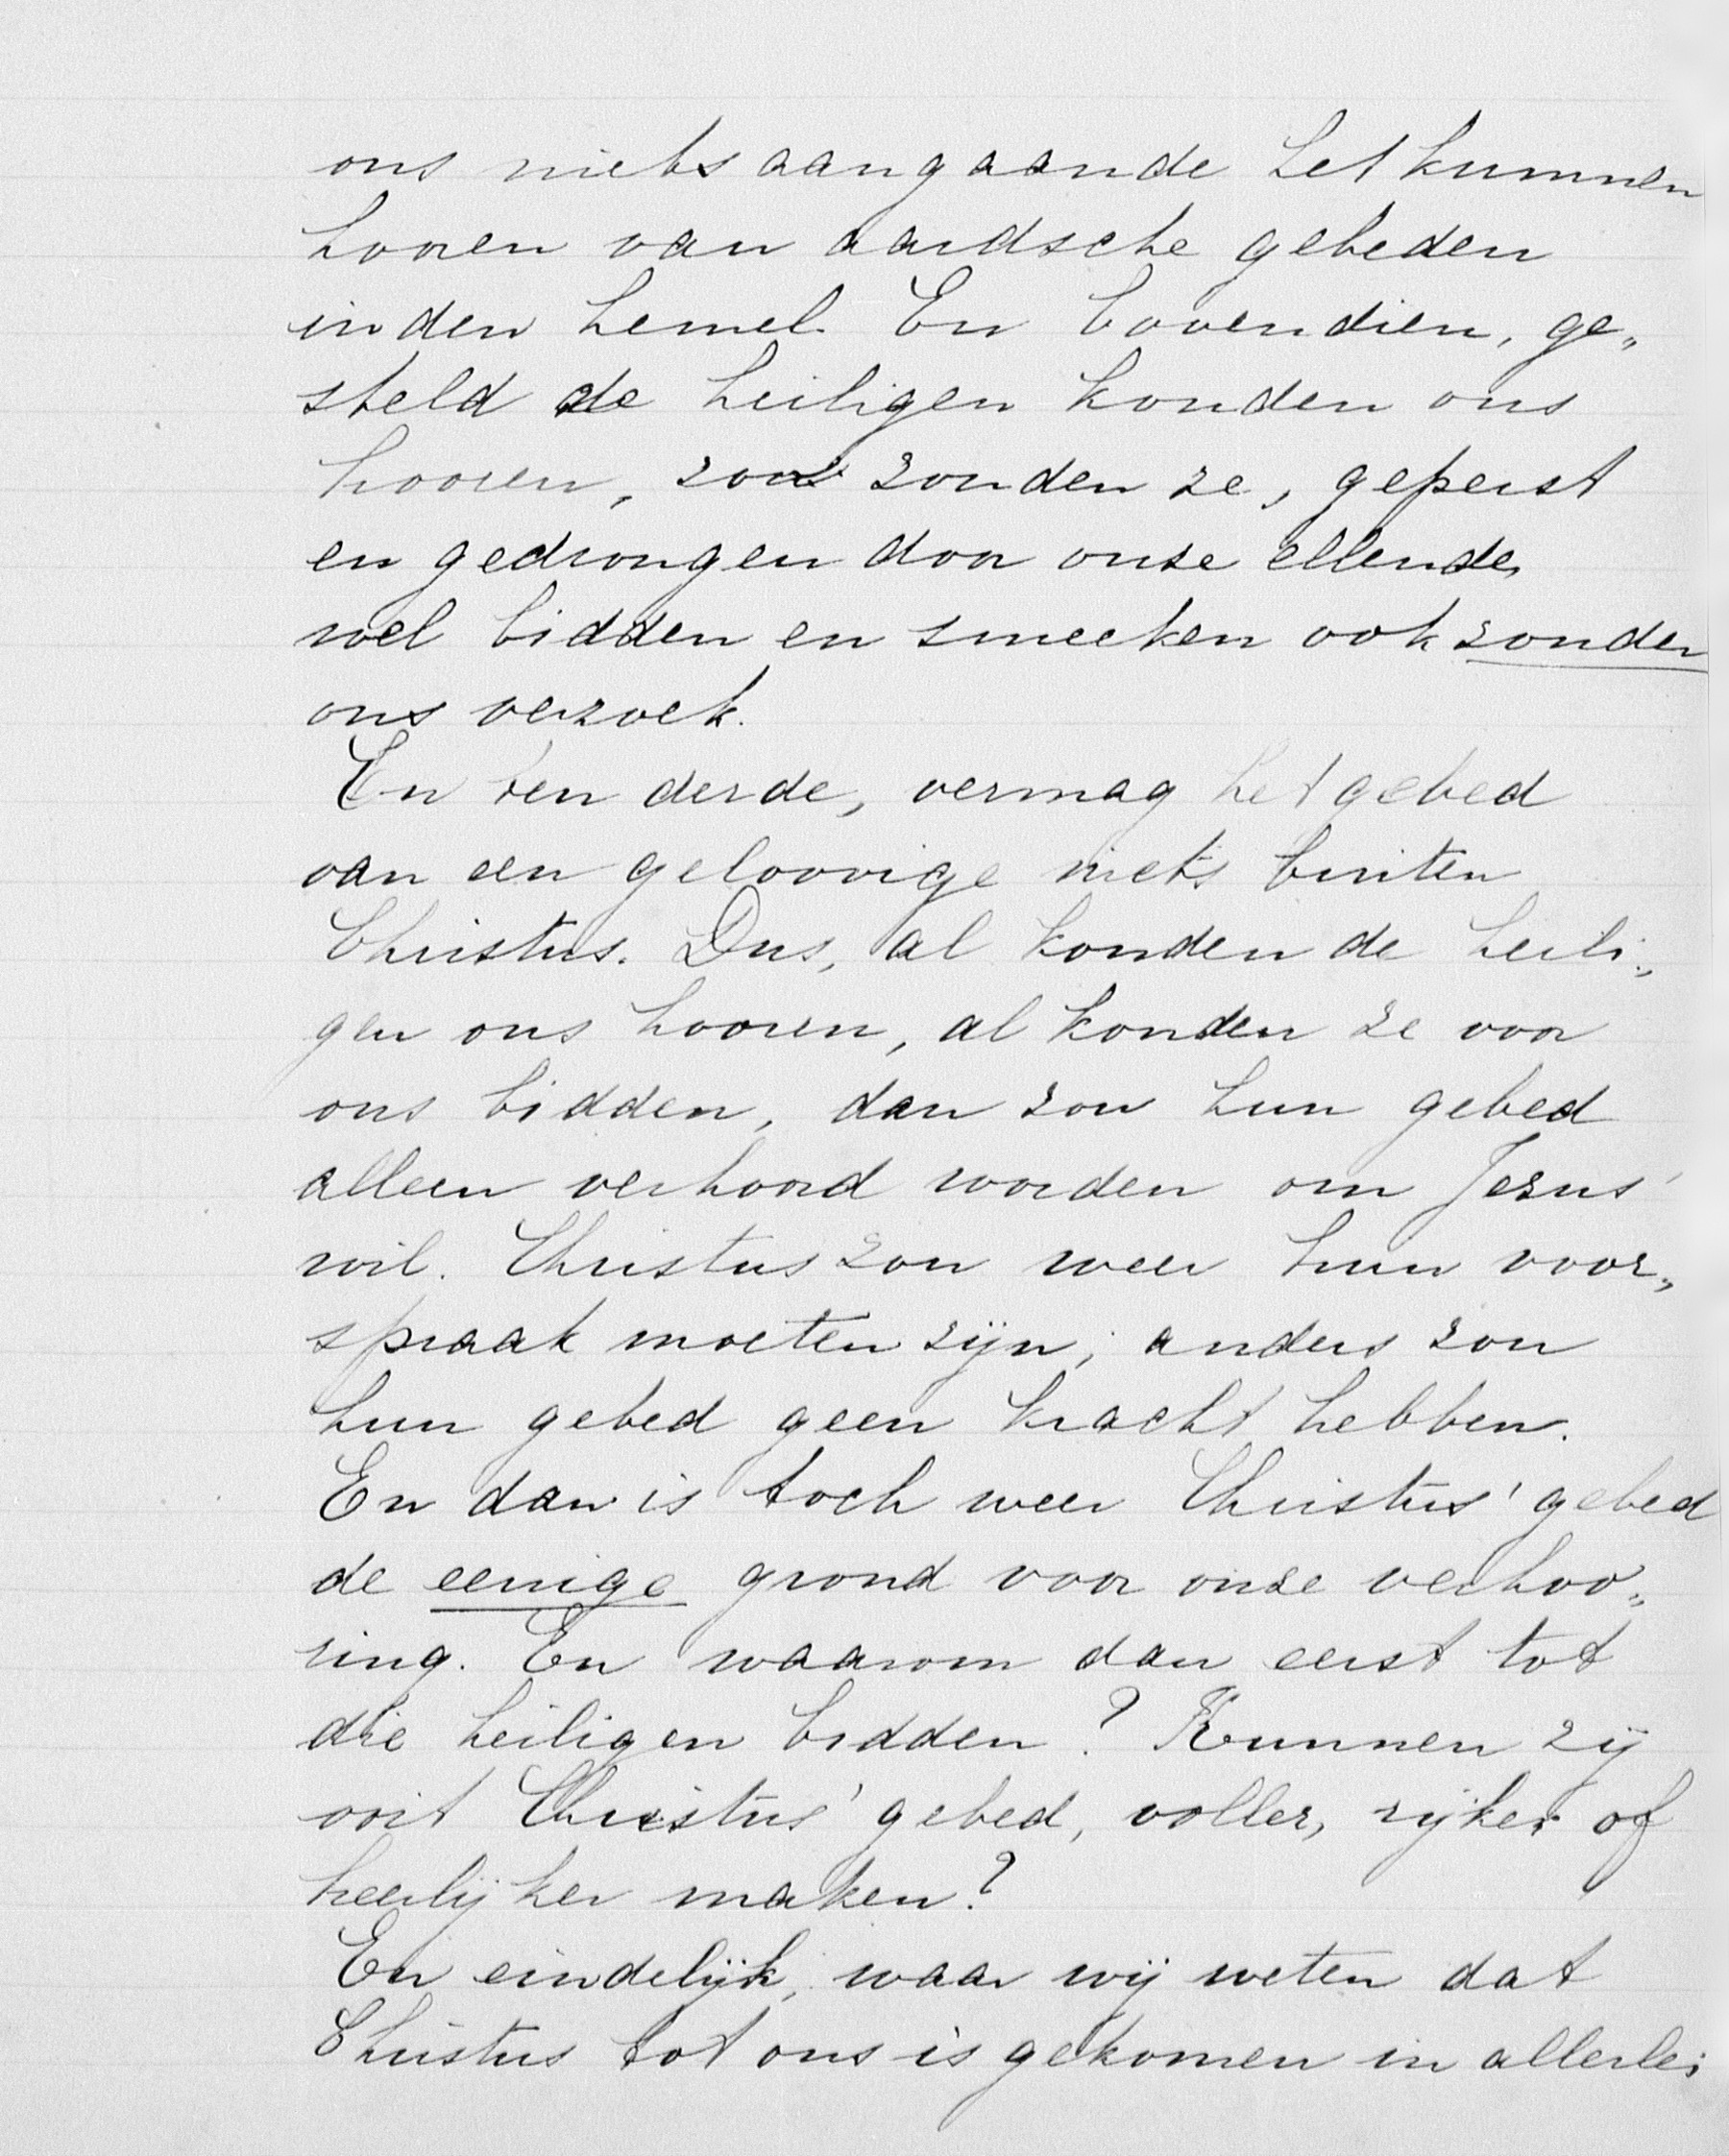 ons niets aangaande het kunnen
hooren van aardsche gebeden
in den hemel. En bovendien, ge„
steld de heiligen konden ons
hooren, zouden ze, geperst
en gedrongen door onze ellende,
wel bidden en smeeken ook zonder
ons verzoek.
En ten derde, vermag het gebed
van een geloovige niets buiten
Christus. Dus, al konden de heili„
gen ons hooren, al konden ze voor
ons bidden, dan zou hun gebed
alleen verhoord worden om Jezus'
wil. Christus zou weer hun voor„
spraak moeten zijn, anders zou
hun gebed geen kracht hebben.
En dan is toch weer Christus' gebed
de eenige grond voor onze verhoo„
ring. En waarom dan eerst tot
die heiligen bidden? Kunnen zij
ooit Christus' gebed, voller, rijker of
heerlijker maken?
En eindelijk, waar wij weten dat
Christus tot ons is gekomen in allerlei